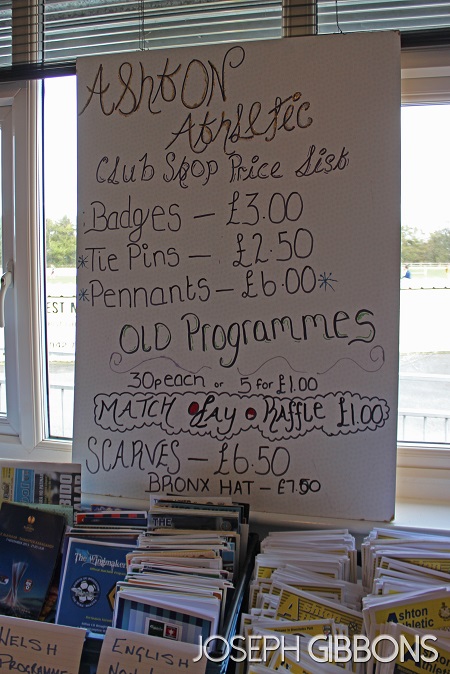 AShtON
Athletic
Club Shop Price List
Badges – £3.00
*Tie Pins – £2.50
*Pennants – £6.00*
OLD Programmes
30p each or 5 for £1.00
MATCH day Raffle £1.00
SCARVES – £6.50
BRONX HAT – £7.50
The Wingmakers
WELSH
PROGRAMME
ENGLISH
Ashton
Athletic
JOSEPH GIBBONS